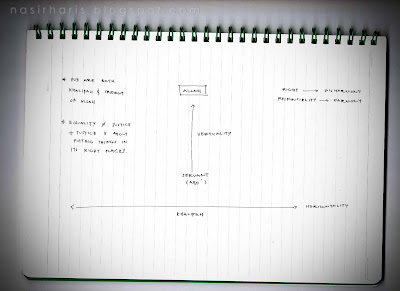 nasirharis.blogspot.com
* WE ARE BOTH
KHALIFAH & SERVANT
OF ALLAH
* EQUALITY ≠ JUSTICE
→ JUSTICE IS ABOUT
PUTTING THINGS IN
ITS RIGHT PLACES.
ALLAH
VERTICALITY
SERVANT
(ABD)
KHALIFAH
HORIZONTALITY
RIGHT → DISHARMONY
RESPONSIBILITY → HARMONY